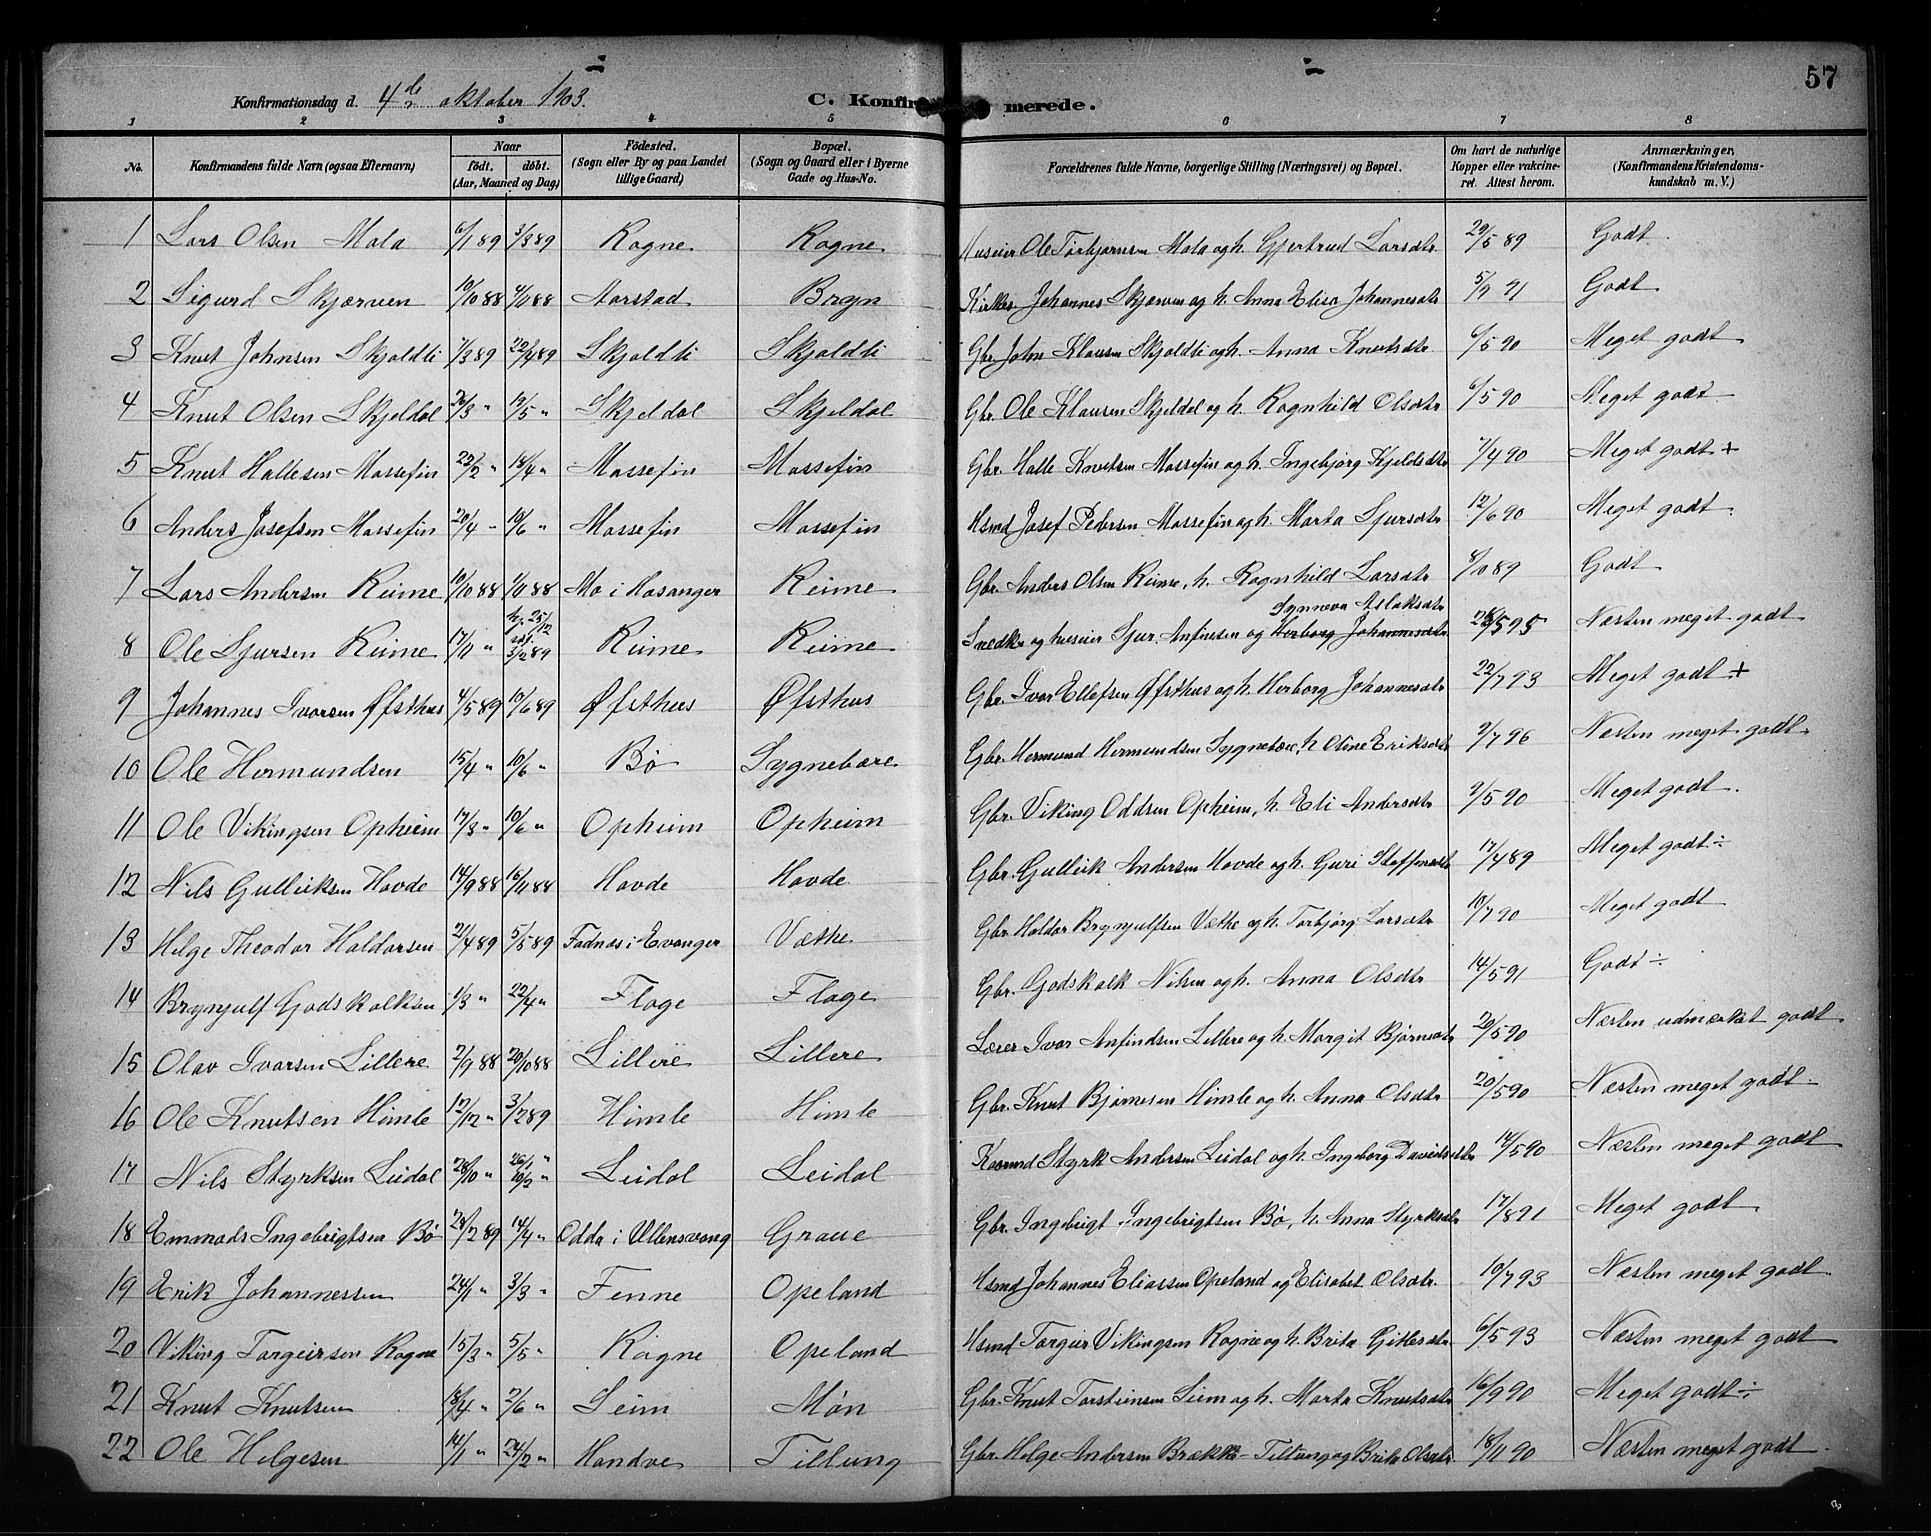 57
Konfirmationsdag d. 4de oktober 1903. C. Konfirmerede.
1 2 3 4 5 6 7 8
No. Konfirmandens fulde Navn (ogsaa Efternavn) Naar født. døbt. (Aar, Maaned og Dag) Fødested. (Sogn eller By og paa Landet tillige Gaard) Bopæl. (Sogn og Gaard eller i Byerne Gade og Hus-No. Forældrenes fulde Navne, borgerlige Stilling (Næringsvei) og Bopæl. Om havt de naturlige Kopper eller vakcineret. Attest herom. Anmærkninger, (Konfirmandens Kristendomskundskab m. V.)
1 Lars Olsen Mala 6/1 89 3/3 89 Rogne Rogne Huseier Ole Torbjørnsen Mala og h. Gjertrud Larsdtr 29/5 89 Godt
2 Sigurd Skjerven 10/10 88 4/11 88 Aarstad Bryn Johannes Skjerven og h. Anna Elisa Johannesdtr 5/9 91 Godt
3 Knut Johnsen Skjeldli 7/3 89 22/4 89 Skjeldli Skjeldli Gbr. John Klausen Skjeldli og h. Anna Knutsdtr 6/5 90 Meget godt
4 Knut Olsen Skjeldal 26/3 " 12/5 " Skjeldal Skjeldal Gbr. Ole Klausen Skjeldal og h. Ragnhild Olsdtr 6/5 90 Meget godt
5 Knut Hallesen Mossefin 22/2 " 14/4 " Mossefin Mossefin Gbr. Halle Knutsen Mossefin og h. Ingebjørg Kjeldsdtr 7/4 90 Meget godt +
6 Anders Josefsen Mossefin 20/4 " 10/6 " Mossefin Mossefin Hsmd Josef Pedersen Mossefin og h. Marta Sjursdtr 12/6 90 Meget godt
7 Lars Andersen Reime 10/10 88 1/11 88 Mo i Hosanger Reime Gbr. Anders Olsen Reime, h. Ragnhild Larsdtr 8/10 89 Godt
8 Ole Sjursen Reime 17/11 " hj. 25/12 3/2 89 Reime Reime Snedker og huseier Sjur Anfinsen og Herborg Johannesdtr Synneva Aslaksdtr 28/5 95 Næsten meget godt
9 Johannes Ivarsen Øfsthus 4/5 89 10/6 89 Øfsthus Øfsthus Gbr. Ivar Ellefsen Øfsthus og h. Herborg Johannesdtr 22/7 93 Meget godt +
10 Ole Hermundsen 15/4 " 10/6 " Bø Sygnebære Gbr. Hermund Hermundsen Sygnebære, h Oline Eriksdtr 2/7 96 Næsten meget godt
11 Ole Vikingsen Opheim 17/3 " 10/6 " Opheim Opheim Gbr. Viking Oddsen Opheim, h. Eli Andersdtr 2/5 90 Meget godt.
12 Nils Gulleiksen Hovde 14/9 88 16/11 88 Hovde Hovde Gbr. Gulleik Andersen Hovde og h. Guri Steffensdtr 17/4 89 Meget godt ÷
13 Helge Theodor Haldorsen 21/4 89 5/5 89 Fadnæs i Evanger Væthe Gbr. Haldor Brynjulfsen Væthe og h. Torbjørg Larsdtr 10/7 90 Meget godt
14 Brynjulf Godskalksen 1/3 " 22/4 " Flage Flage Gbr. Godskalk Nilsen og h. Anna Olsdtr 14/5 91 Godt ÷
15 Olav Ivarsen Lillere 2/9 88 20/10 88 Lillere Lillere Lærer Ivar Anfindsen Lillere og h. Margit Bjørnsdtr 20/5 90 Næsten udmerket godt
16 Ole Knutsen Himle 12/12 " 3/2 89 Himle Himle Gbr. Knut Bjørnesen Himle og h. Anna Olsdtr 20/5 90 Næsten meget godt
17 Nils Styrksen Leidal 28/10 " 26/1 " 10/2 " Leidal Leidal Styrk Andersen Leidal og h. Ingeborg Davidsdtr 14/5 90 Næsten meget godt
18 Emmads Ingebrigtsen Bø 28/2 89 14/4 " Odda i Ullensvang Graue Gbr. Ingebrigt Ingebrigtsen Bø, h. Anna Styrksdtr 17/8 91 Meget godt
19 Erik Johannessen 24/1 " 3/3 " Fenne Opeland Hsmd Johannes Eliassen Opeland og Elisabet Olsdtr. 10/7 93 Næsten meget godt
20 Viking Torgeirsen Rogne 15/3 " 5/5 " Rogne Opeland Hsmd Torgeir Vikingsen Rogne og h. Brita Gitlesdtr 6/5 93 Næsten meget godt
21 Knut Knutsen 18/4 " 2/6 " Seim Møn Gbr. Knut Torsteinsen Seim og h. Marta Knutsdtr 16/9 90 Meget godt ÷
22 Ole Helgesen 14/1 " 24/2 " Handve Tillung Gbr. Helge Andersen Brække Tillung og Brita Olsdtr 18/11 90 Næsten meget godt